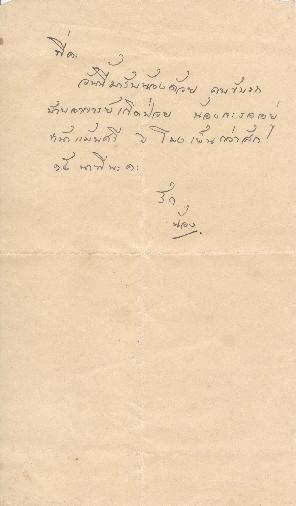 พี่คะ
วันนี้มารับน้องด้วย คนขับรถ
บ้านอาจารย์เกิดป่วย น้องจะรออยู่
หน้าแม้นศรี ๖ โมงเย็นกว่าสัก
๑๕ นาทีนะคะ
รัก
น้อง